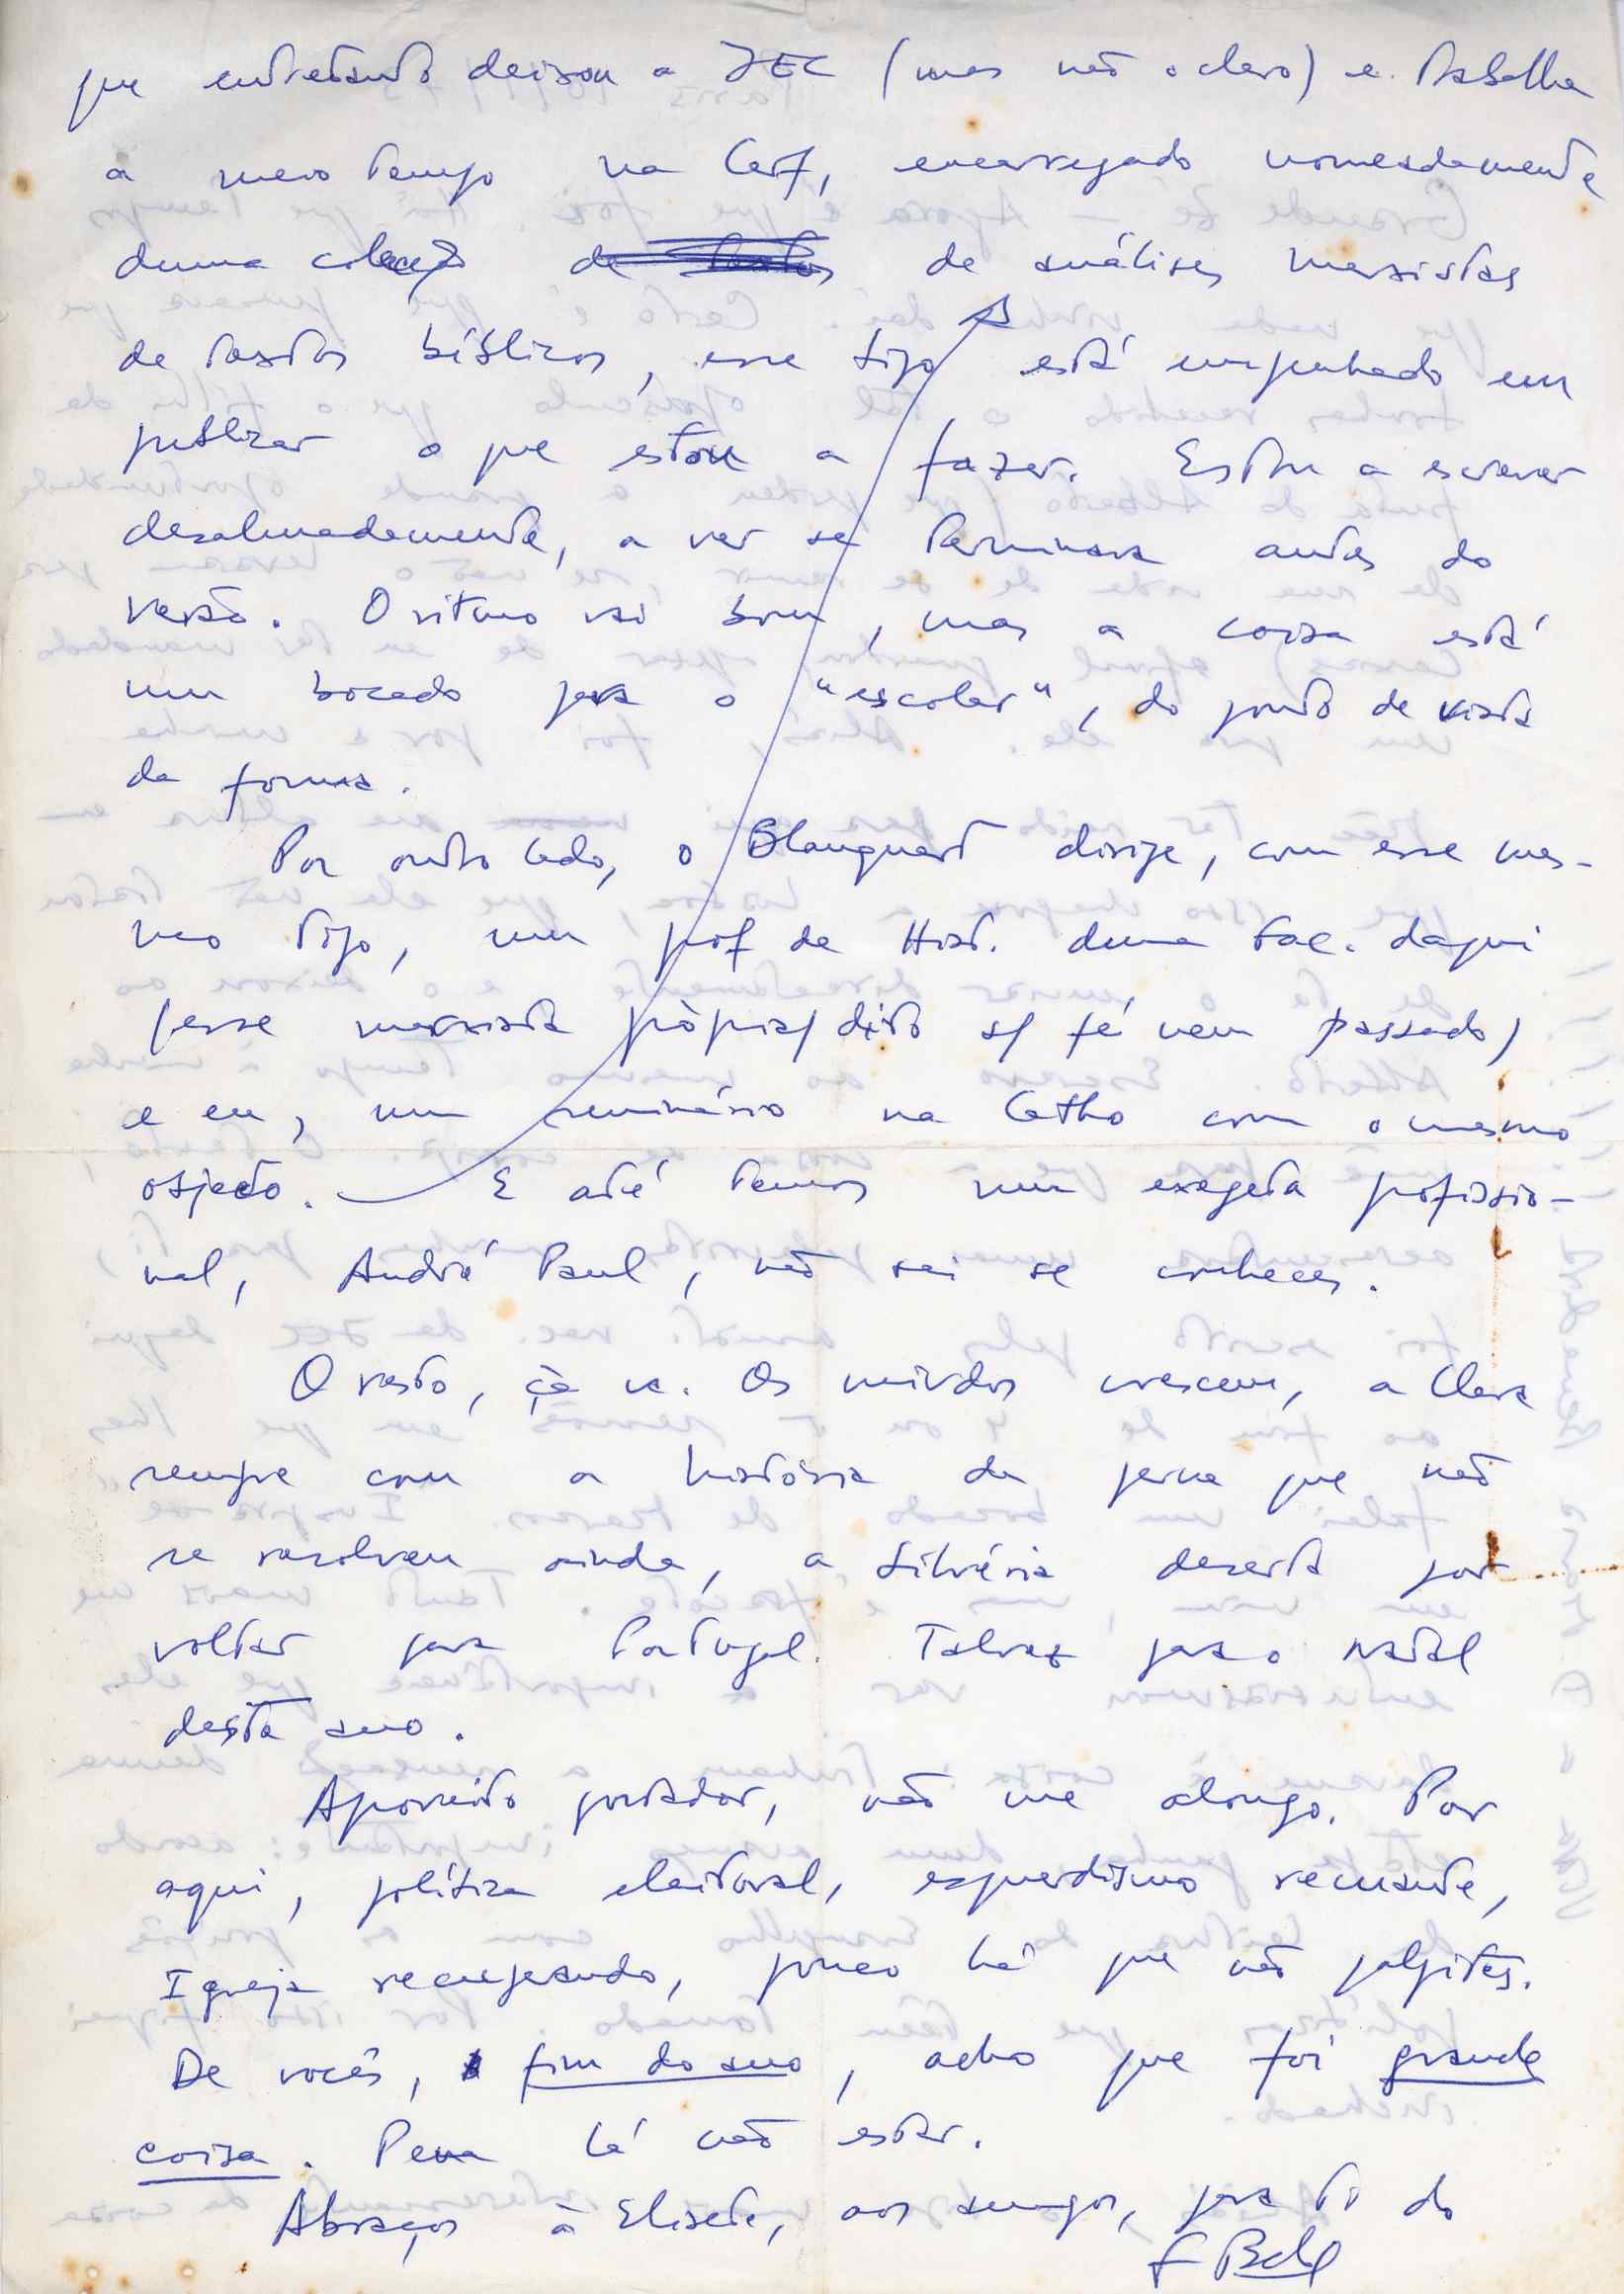 que entretanto deixou a JEC (mas não o clero) e trabalha
a meio tempo na Cerf, encarregado nomeadamente
duma colecção de textos de análises marxistas
de textos bíblicos, esse tipo está empenhado em
publicar o que estou a fazer. Estou a escrever
desalmadamente, a ver se terminava antes do
verão. O ritmo vai bom, mas a coisa está
um bocado para o "escolar", do ponto de vista
da forma.
Por outro lado, o Blanquart dirige, com esse mes-
mo tipo, um prof de Hist. duma Fac. daqui
(esse marxista pròpria/ dito s/ fé nem passado)
e eu, um seminário na Catho com o mesmo
objecto. — E até temos um exegeta profissio-
nal, André Paul, não sei se conheces.
O resto, ça va. Os miúdos crescem, a Clara
sempre com a história da perna que não
se resolveu ainda, a Silvéria deserta por
voltar para Portugal. Talvez para o Natal
deste ano.
Aproveito portador, não me alongo. Por
aqui, política eleitoral, esquerdismo recuante,
Igreja recuperando, pouco há que não palpites.
De vocês, fim do ano, acho que foi grande
coisa. Pena lá não estar.
Abraços à Elisete, aos amigos, para ti do
F Belo